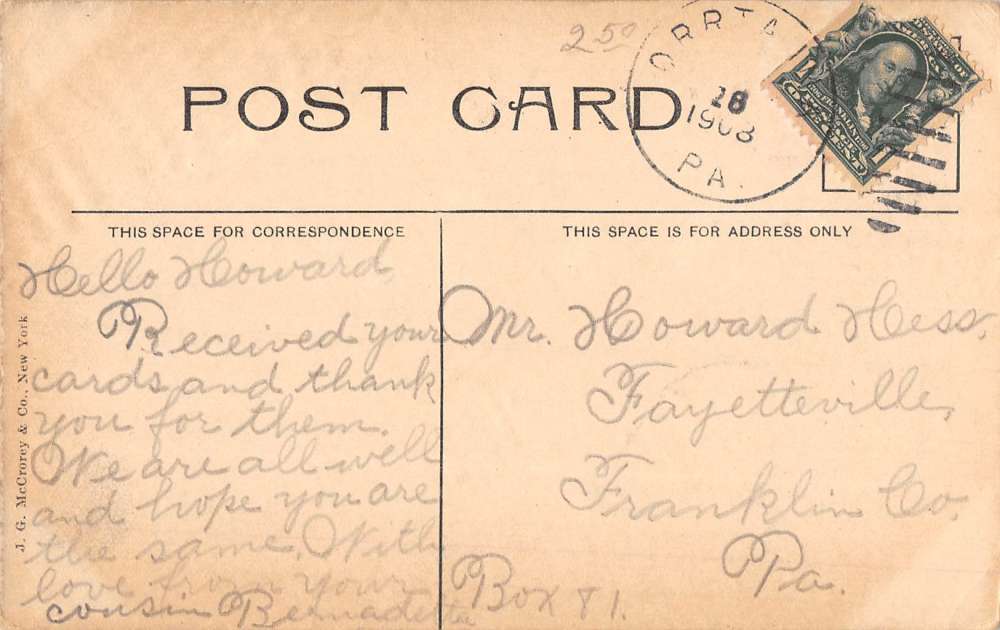 250
ORRTA
28
1908
PA.
POST CARD
THIS SPACE FOR CORRESPONDENCE
THIS SPACE IS FOR ADDRESS ONLY
Hello Howard,
Received your
cards and thank
you for them.
We are all well
and hope you are
the same. With
love from your
cousin Bernadette
Mr. Howard Hess,
Fayetteville,
Franklin Co.
Pa.
Box 81.
J. G. McCrorey & Co., New York